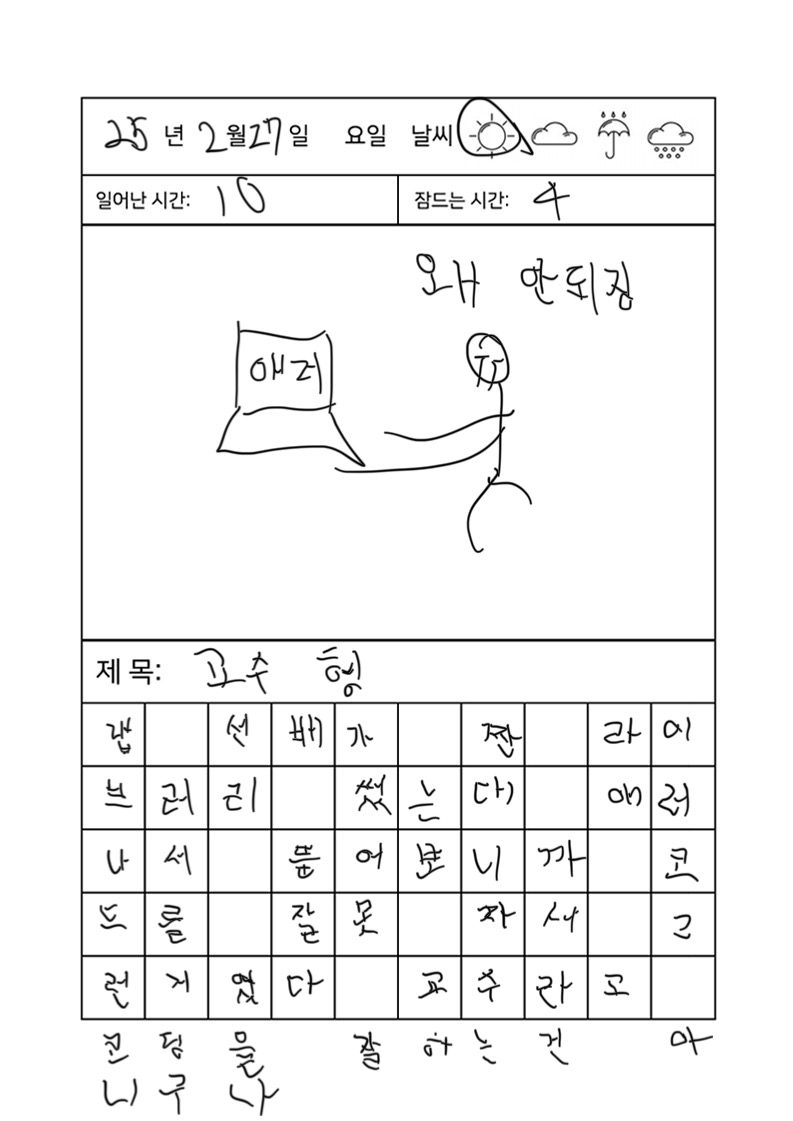 25 년 2 월 27 일 요일 날씨
일어난 시간: 10 잠드는 시간: 4
왜 안되징
애러
제 목: 교수 형
랩 선배가 짠 라이
브러리 썼는대 애러
나서 뜯어보니까 코
드를 잘못 짜서 그
런거였다 교수라고
코딩을 잘하는건 아
니구나